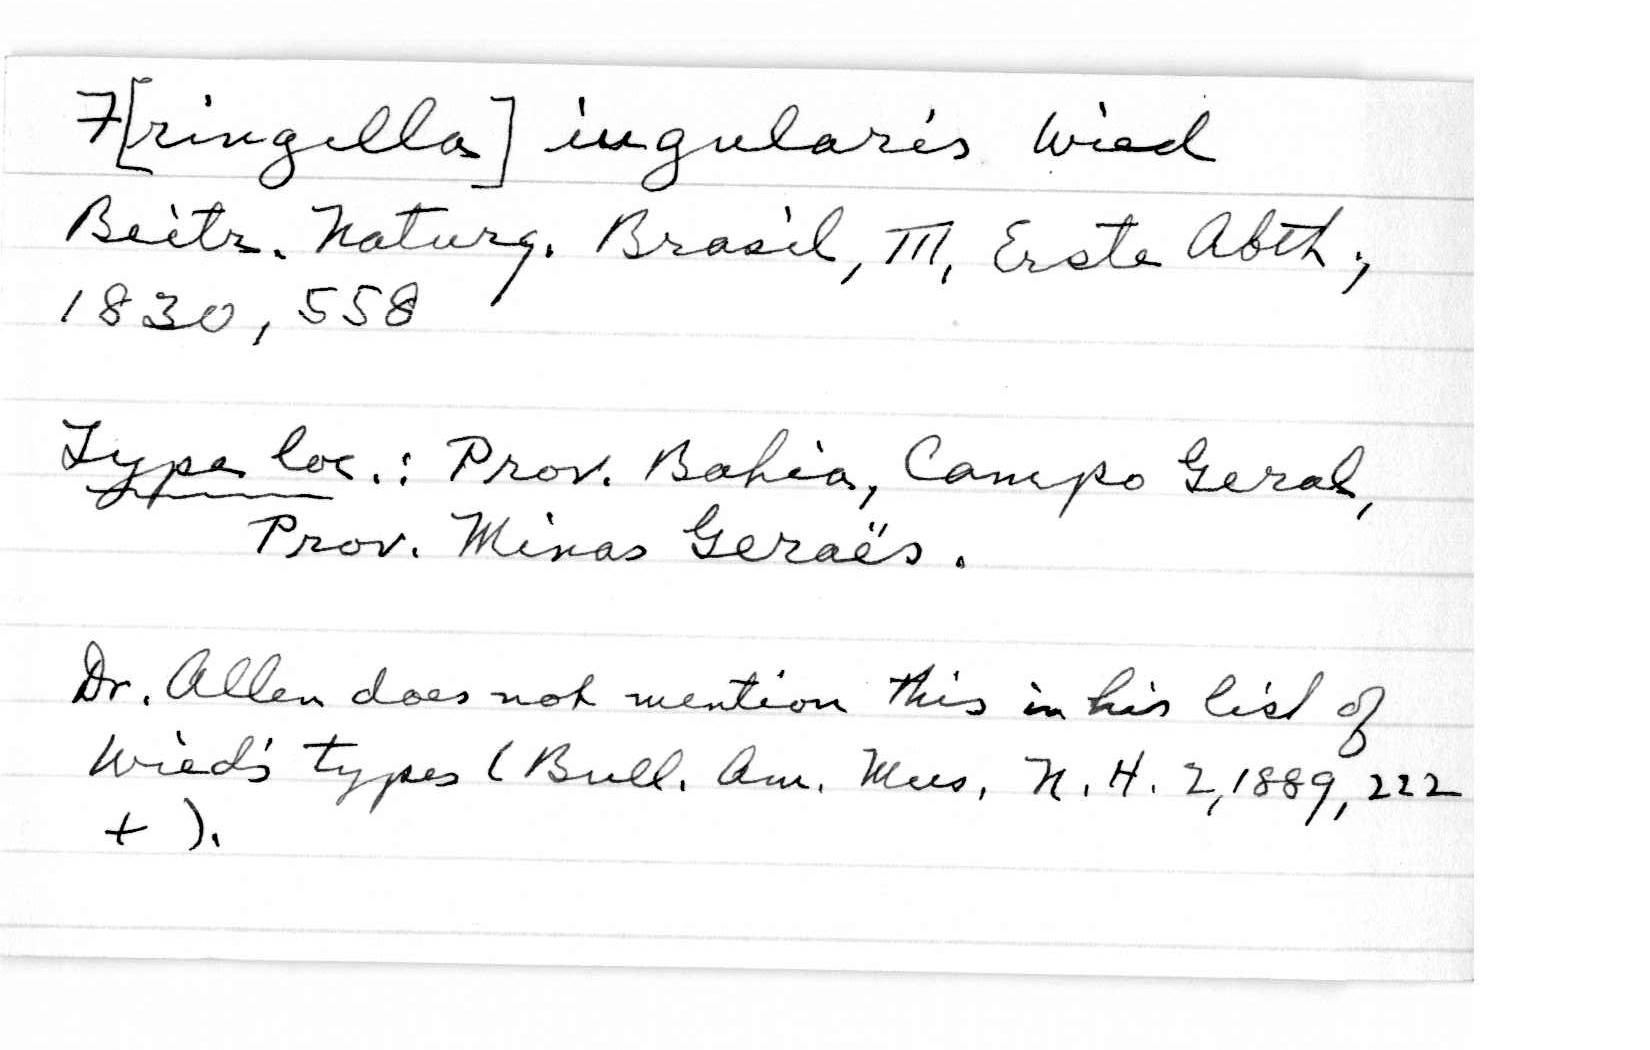 F[ringilla] iugularis Wied
Beitr. Naturg. Brasil, III, Erste Abth.,
1830, 558
Type loc.: Prov. Bahia, Campo Geral,
Prov. Minas Geraës.
Dr. Allen does not mention this in his list of
Wied's types (Bull. Am. Mus. N. H. 2, 1889, 222
+ ).